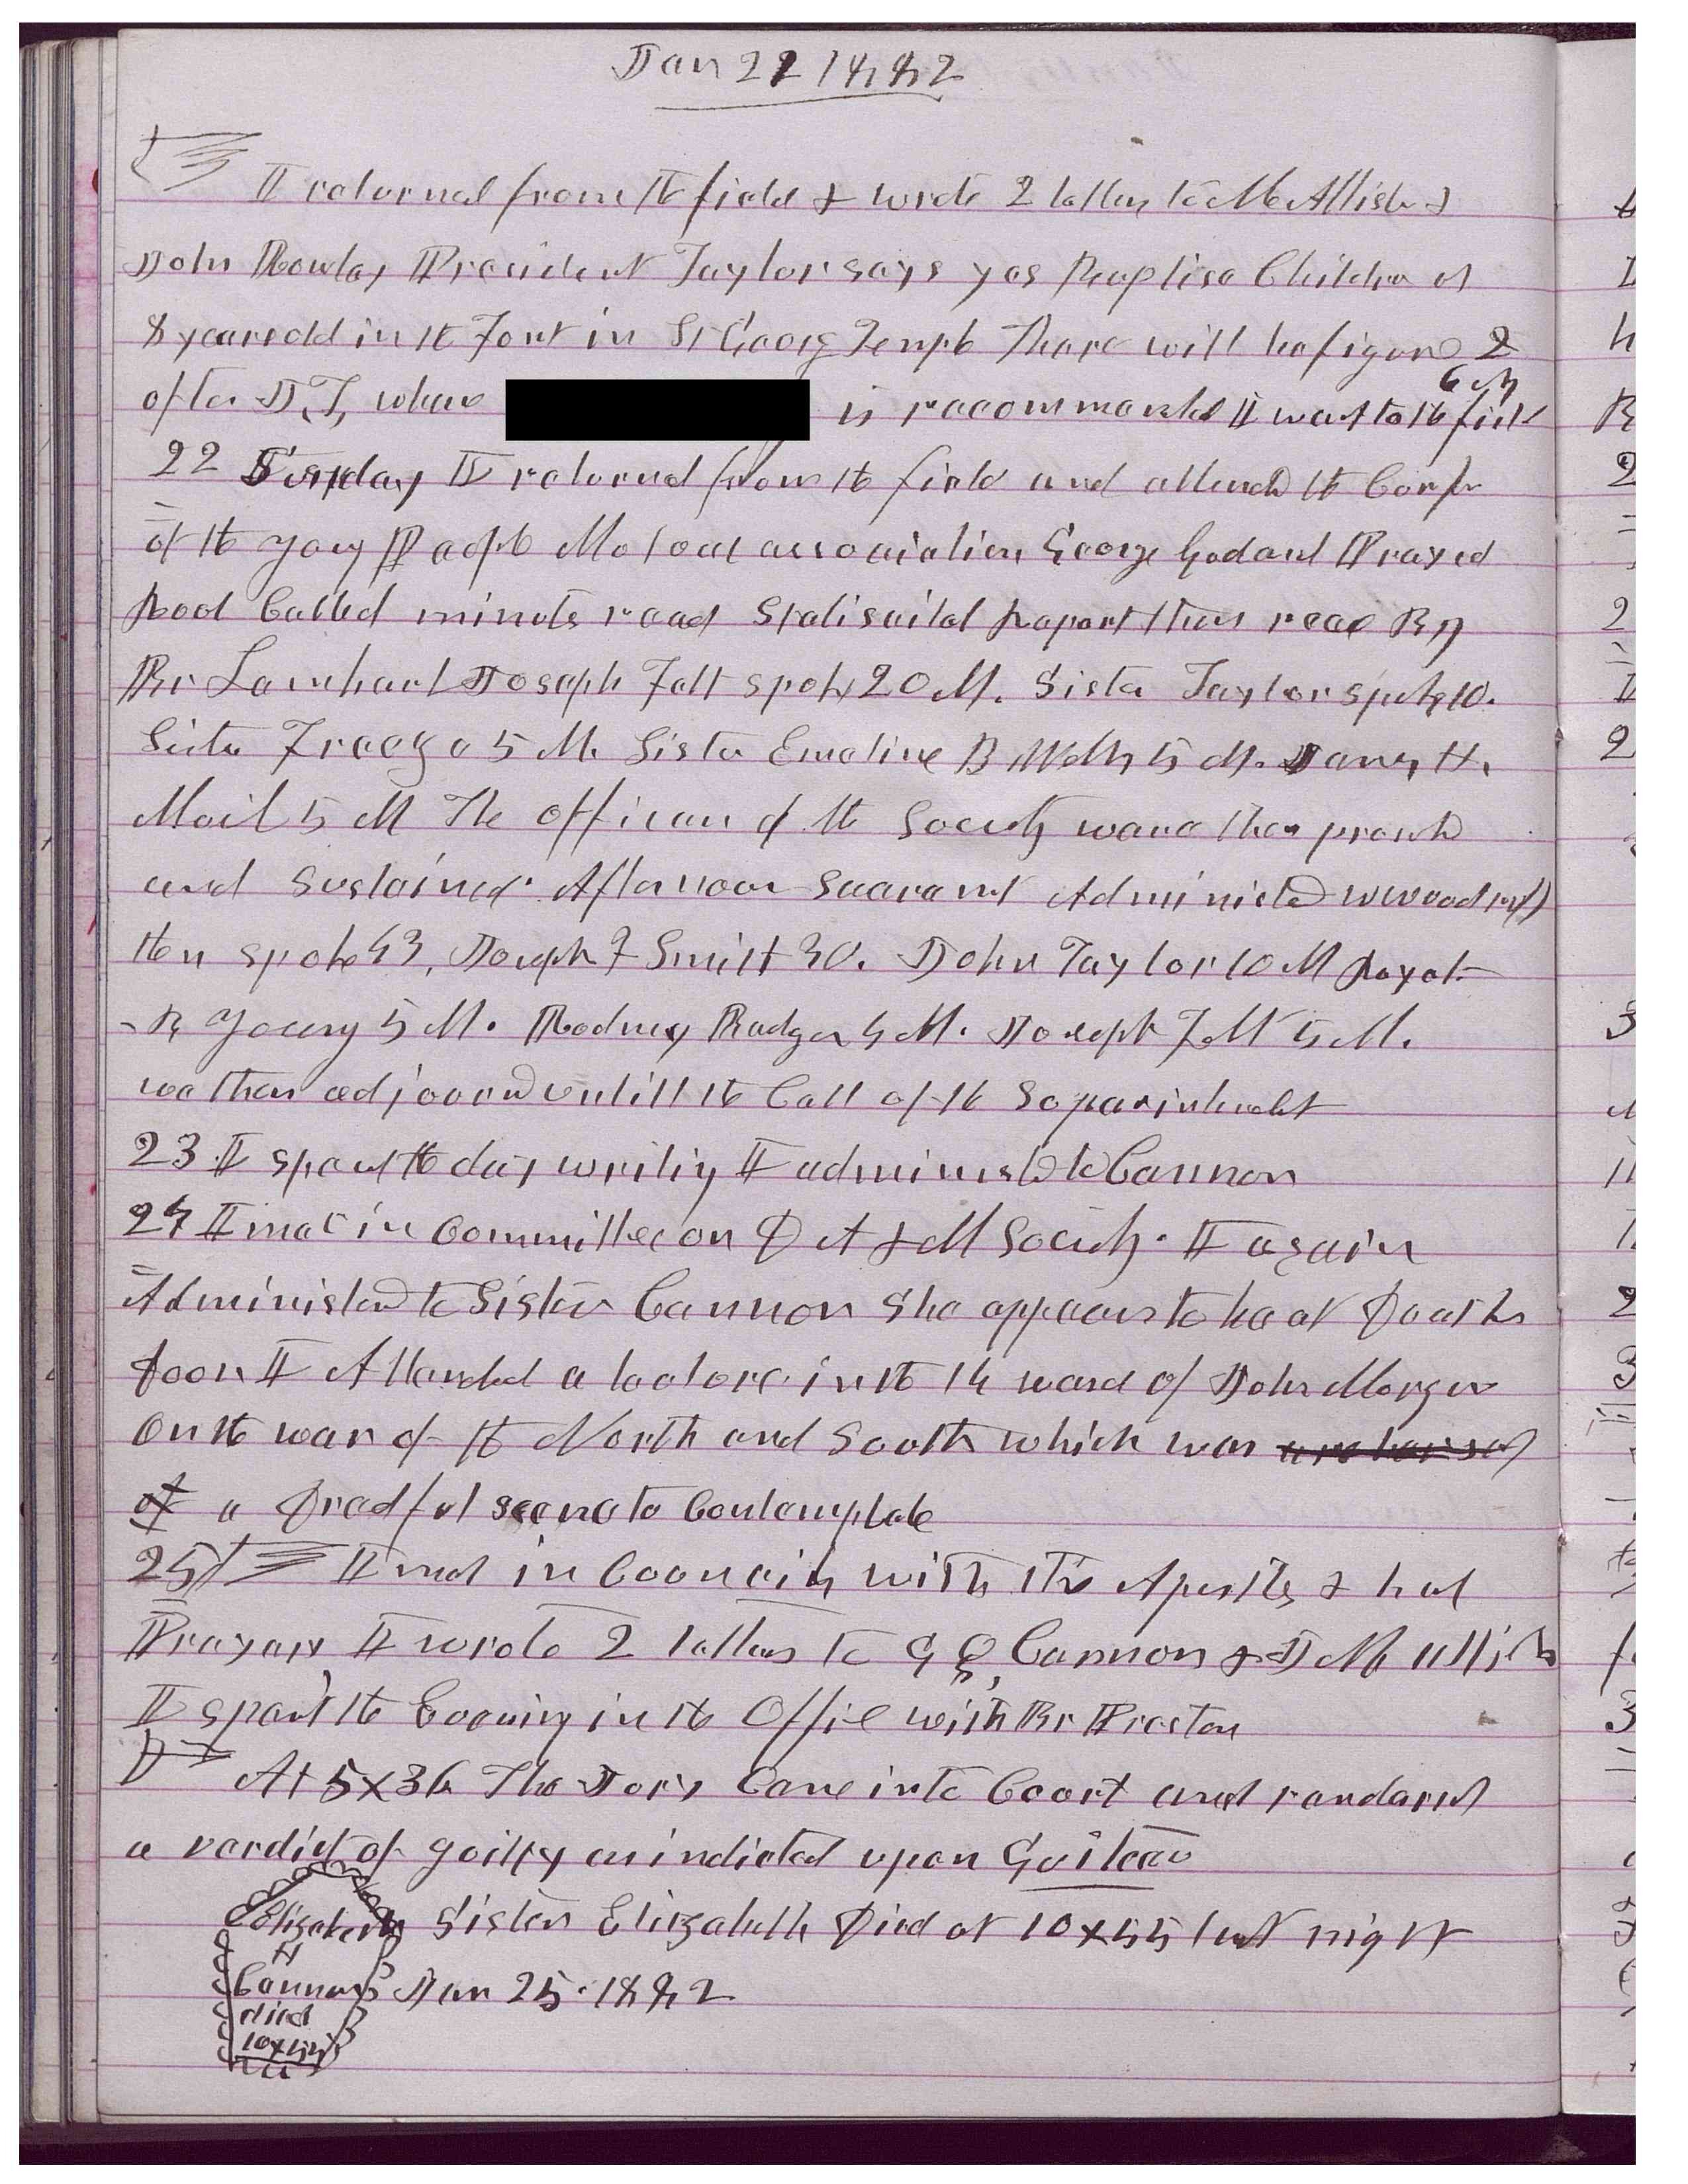 Jan 21 1882
I returned from the field & wrote 2 letters to McAllister &
John Rowley President Taylor says yes Baptise Children of
8 years old in the Font in St George Temple There will be figure 2
after D.T, where is recommended I went to the field
6 m
22 Sunday I returned from the field and attended the Conf
of the Young People Mutual association George Godard Prayed
Rool Called minutes read Statisticial Report then read By
Br Joseph Fall spoke 20 M. Sister Taylor spoke 10.
Sister Freeze 5 M. Sister Emeline B Wells 5 M. H.
5 M The officers of the Society ware then presented
and Sustained. Afternoon Sacrament Administed W Woodruff
then spoke 43, Joseph F Smith 30. John Taylor 10 M Royal
B Young 5 M. Rodney Badger 4 M. Joseph 5 M.
we then adjournd untill the Call of the Superintendet
23 I spent the day writing I administed to Cannon
24 I met in Committee on D A & M Society. I again
Administerd to Sister Cannon She appears to be at Deaths
Door I Attended a lecture in the 14 ward of John Morgan
On the war of the North and South which was
of a Dredful scene to Contemplate
25 I met in Councily with the Apostles & had
Prayers I wrote 2 letters to G Q Cannon & J McAllister
I spent the Evening in the Office with Br Preston
At 5x36 The Jury Came into Court and randared
a verdict of guilty as indicted upon Guiteau
Sister Elizabeth Died at 10x55 last night
Jan 25. 1882
Elizabeth
H
Cannon
died
10x55